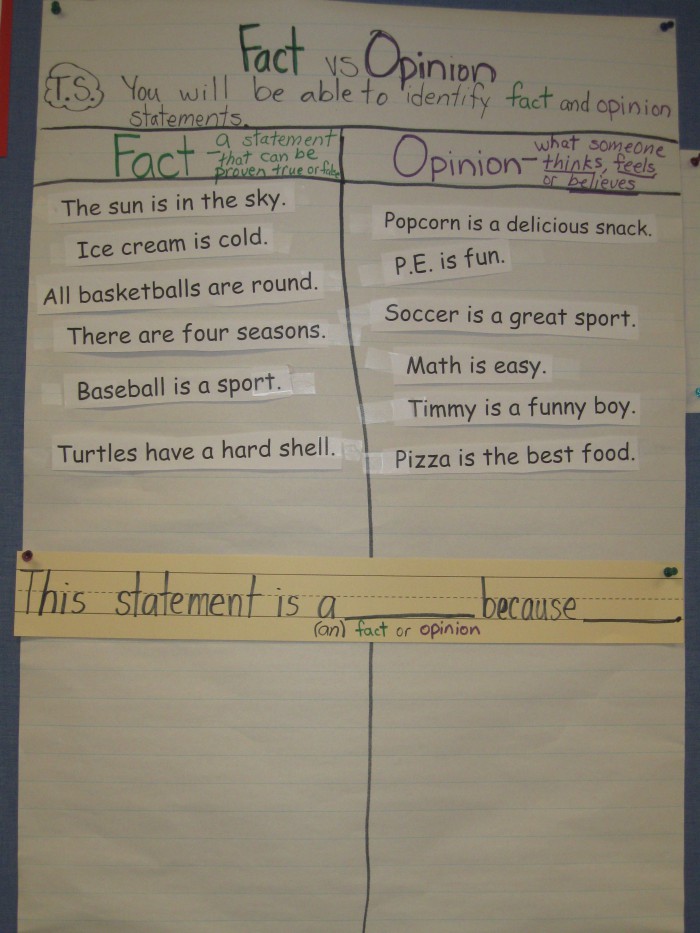 Fact vs Opinion
T.S. You will be able to identify fact and opinion
statements.
Fact - a statement
that can be
proven true or false
Opinion - what someone
thinks, feels,
or believes
The sun is in the sky.
Ice cream is cold.
All basketballs are round.
There are four seasons.
Baseball is a sport.
Turtles have a hard shell.
Popcorn is a delicious snack.
P.E. is fun.
Soccer is a great sport.
Math is easy.
Timmy is a funny boy.
Pizza is the best food.
This statement is a ________ because ________.
(an) fact or opinion